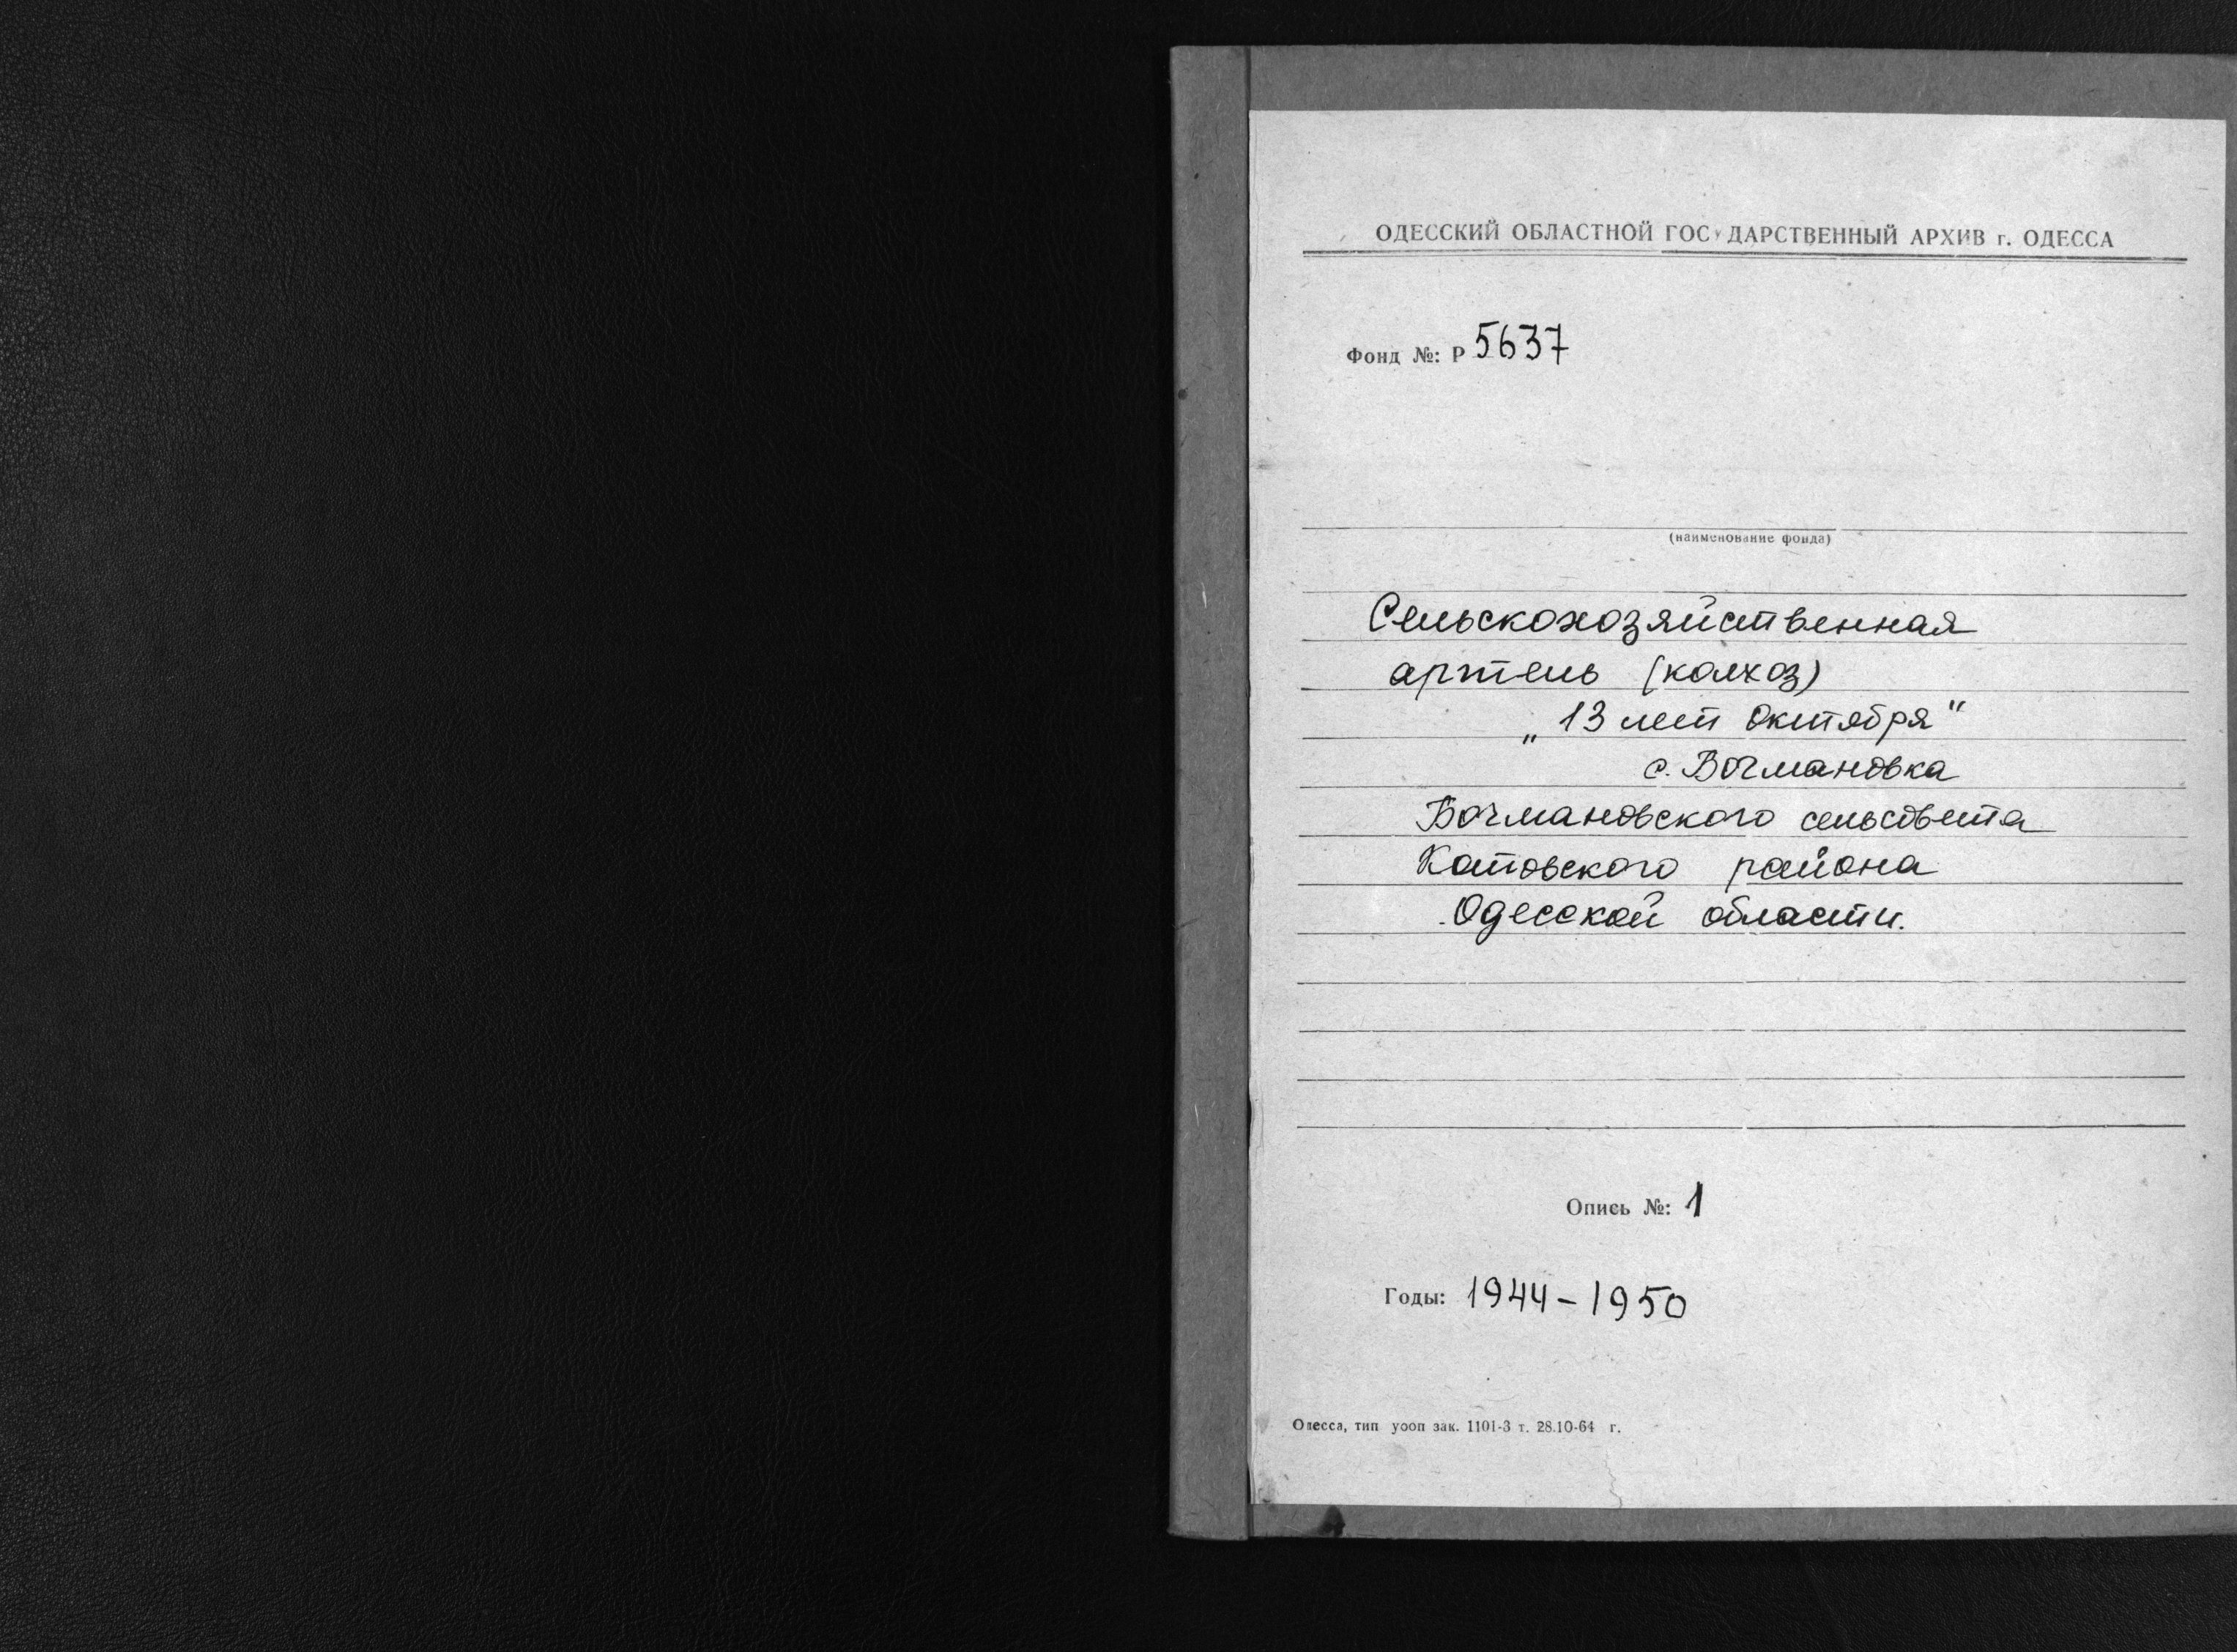 ОДЕССКИЙ ОБЛАСТНОЙ ГОСУДАРСТВЕННЫЙ АРХИВ г. ОДЕССА
Фонд №: Р 5637
(наименование фонда)
Сельскохозяйственная
артель (колхоз)
„13 лет Октября"
с. Бочмановка
Бочмановского сельсовета
Котовского района
Одесской области.
Опись №: 1
Годы: 1944-1950
Одесса, тип уооп зак. 1101-3 т. 28.10-64 г.